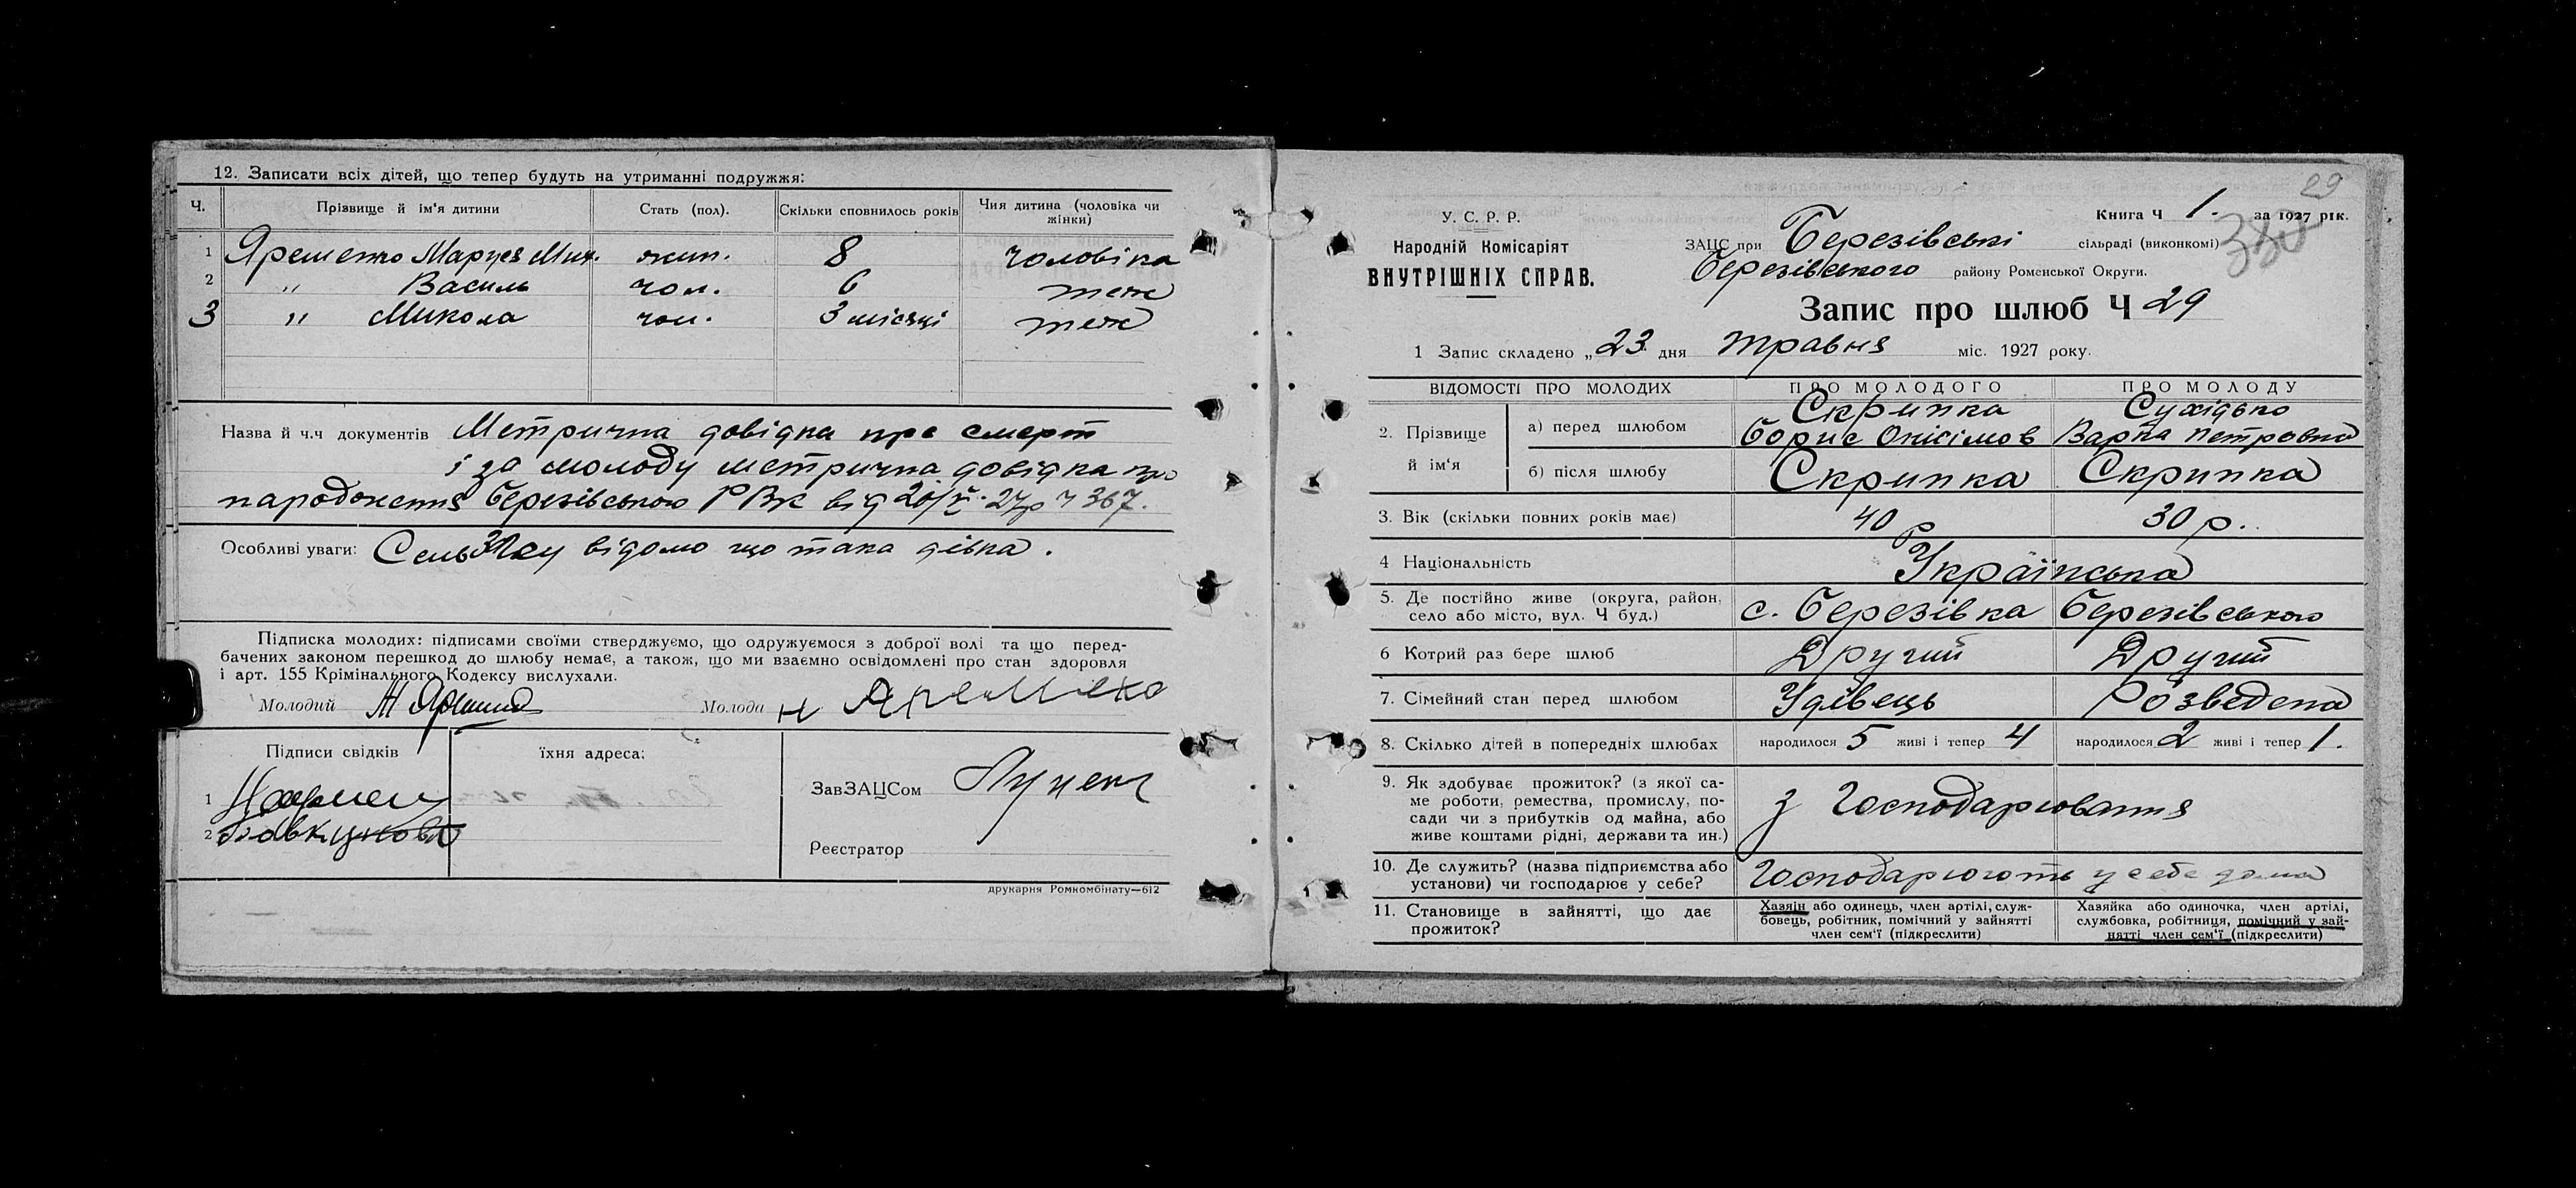 12. Записати всіх дітей, що тепер будуть на утриманні подружжя:
Ч. Прізвище й ім'я дитини Стать (пол). Скільки сповнилось років Чия дитина (чоловіка чи жінки)
1 Яременко Маруся Мих. жин. 8 чоловіка
2 " Василь чол. 6 теж
3 " Микола чол. 3 місяці теж
Назва й ч.ч документів Метрична довідка про смерт
і за молоду метрична довідка про
народження Березівською РВК від 20/V-27р Ч 367.
Особливі уваги: відомо що така дівка.
Підписка молодих: підписами своїми стверджуємо, що одружуємося з доброї волі та що перед-
бачених законом перешкод до шлюбу немає, а також, що ми взаємно освідомлені про стан здоровля
і арт. 155 Крімінального Кодексу вислухали.
Молодий Молода Н Яремeко
Підписи свідків їхня адреса:
1
2
ЗавЗАЦСом Луценк
Реєстратор
друкарня Ромкомбінату—612
29
Книга Ч 1. за 1927 рік.
330
У. С. Р. Р.
Народній Комісаріят
ВНУТРІШНІХ СПРАВ.
ЗАЦС при Березівські сільраді (виконкомі)
Березівського району Роменської Округи.
Запис про шлюб Ч 29
1 Запис складено „23 дня травня міс. 1927 року.
ВІДОМОСТІ ПРО МОЛОДИХ ПРО МОЛОДОГО ПРО МОЛОДУ
2. Прізвище й ім'я а) перед шлюбом Скрипка Борис Онісімов Сухідько Варка Петровна
б) після шлюбу Скрипка Скрипка
3. Вік (скільки повних років має) 40 р 30 р.
4 Національність Українська
5. Де постійно живе (округа, район, село або місто, вул. Ч буд.) с. Березівка Березівського
6 Котрий раз бере шлюб Другий Другий
7. Сімейний стан перед шлюбом Удівець Розведена
8. Скілько дітей в попередніх шлюбах народилося 5 живі і тепер 4 народилося 2 живі і тепер 1.
9. Як здобуває прожиток? (з якої са-
ме роботи, ремества, промислу, по-
сади чи з прибутків од майна, або
живе коштами рідні, держави та ин.)
з господарювання
10. Де служить? (назва підприємства або
установи) чи господарює у себе?
Господарюють у себе дома
11. Становище в зайнятті, що дає
прожиток?
Хазяїн або одинець, член артілі, служ-
бовець, робітник, помічний у зайнятті
член сем'ї (підкреслити)
Хазяйка або одиночка, член артілі,
службовка, робітниця, помічний у зай-
нятті член сем'ї (підкреслити)